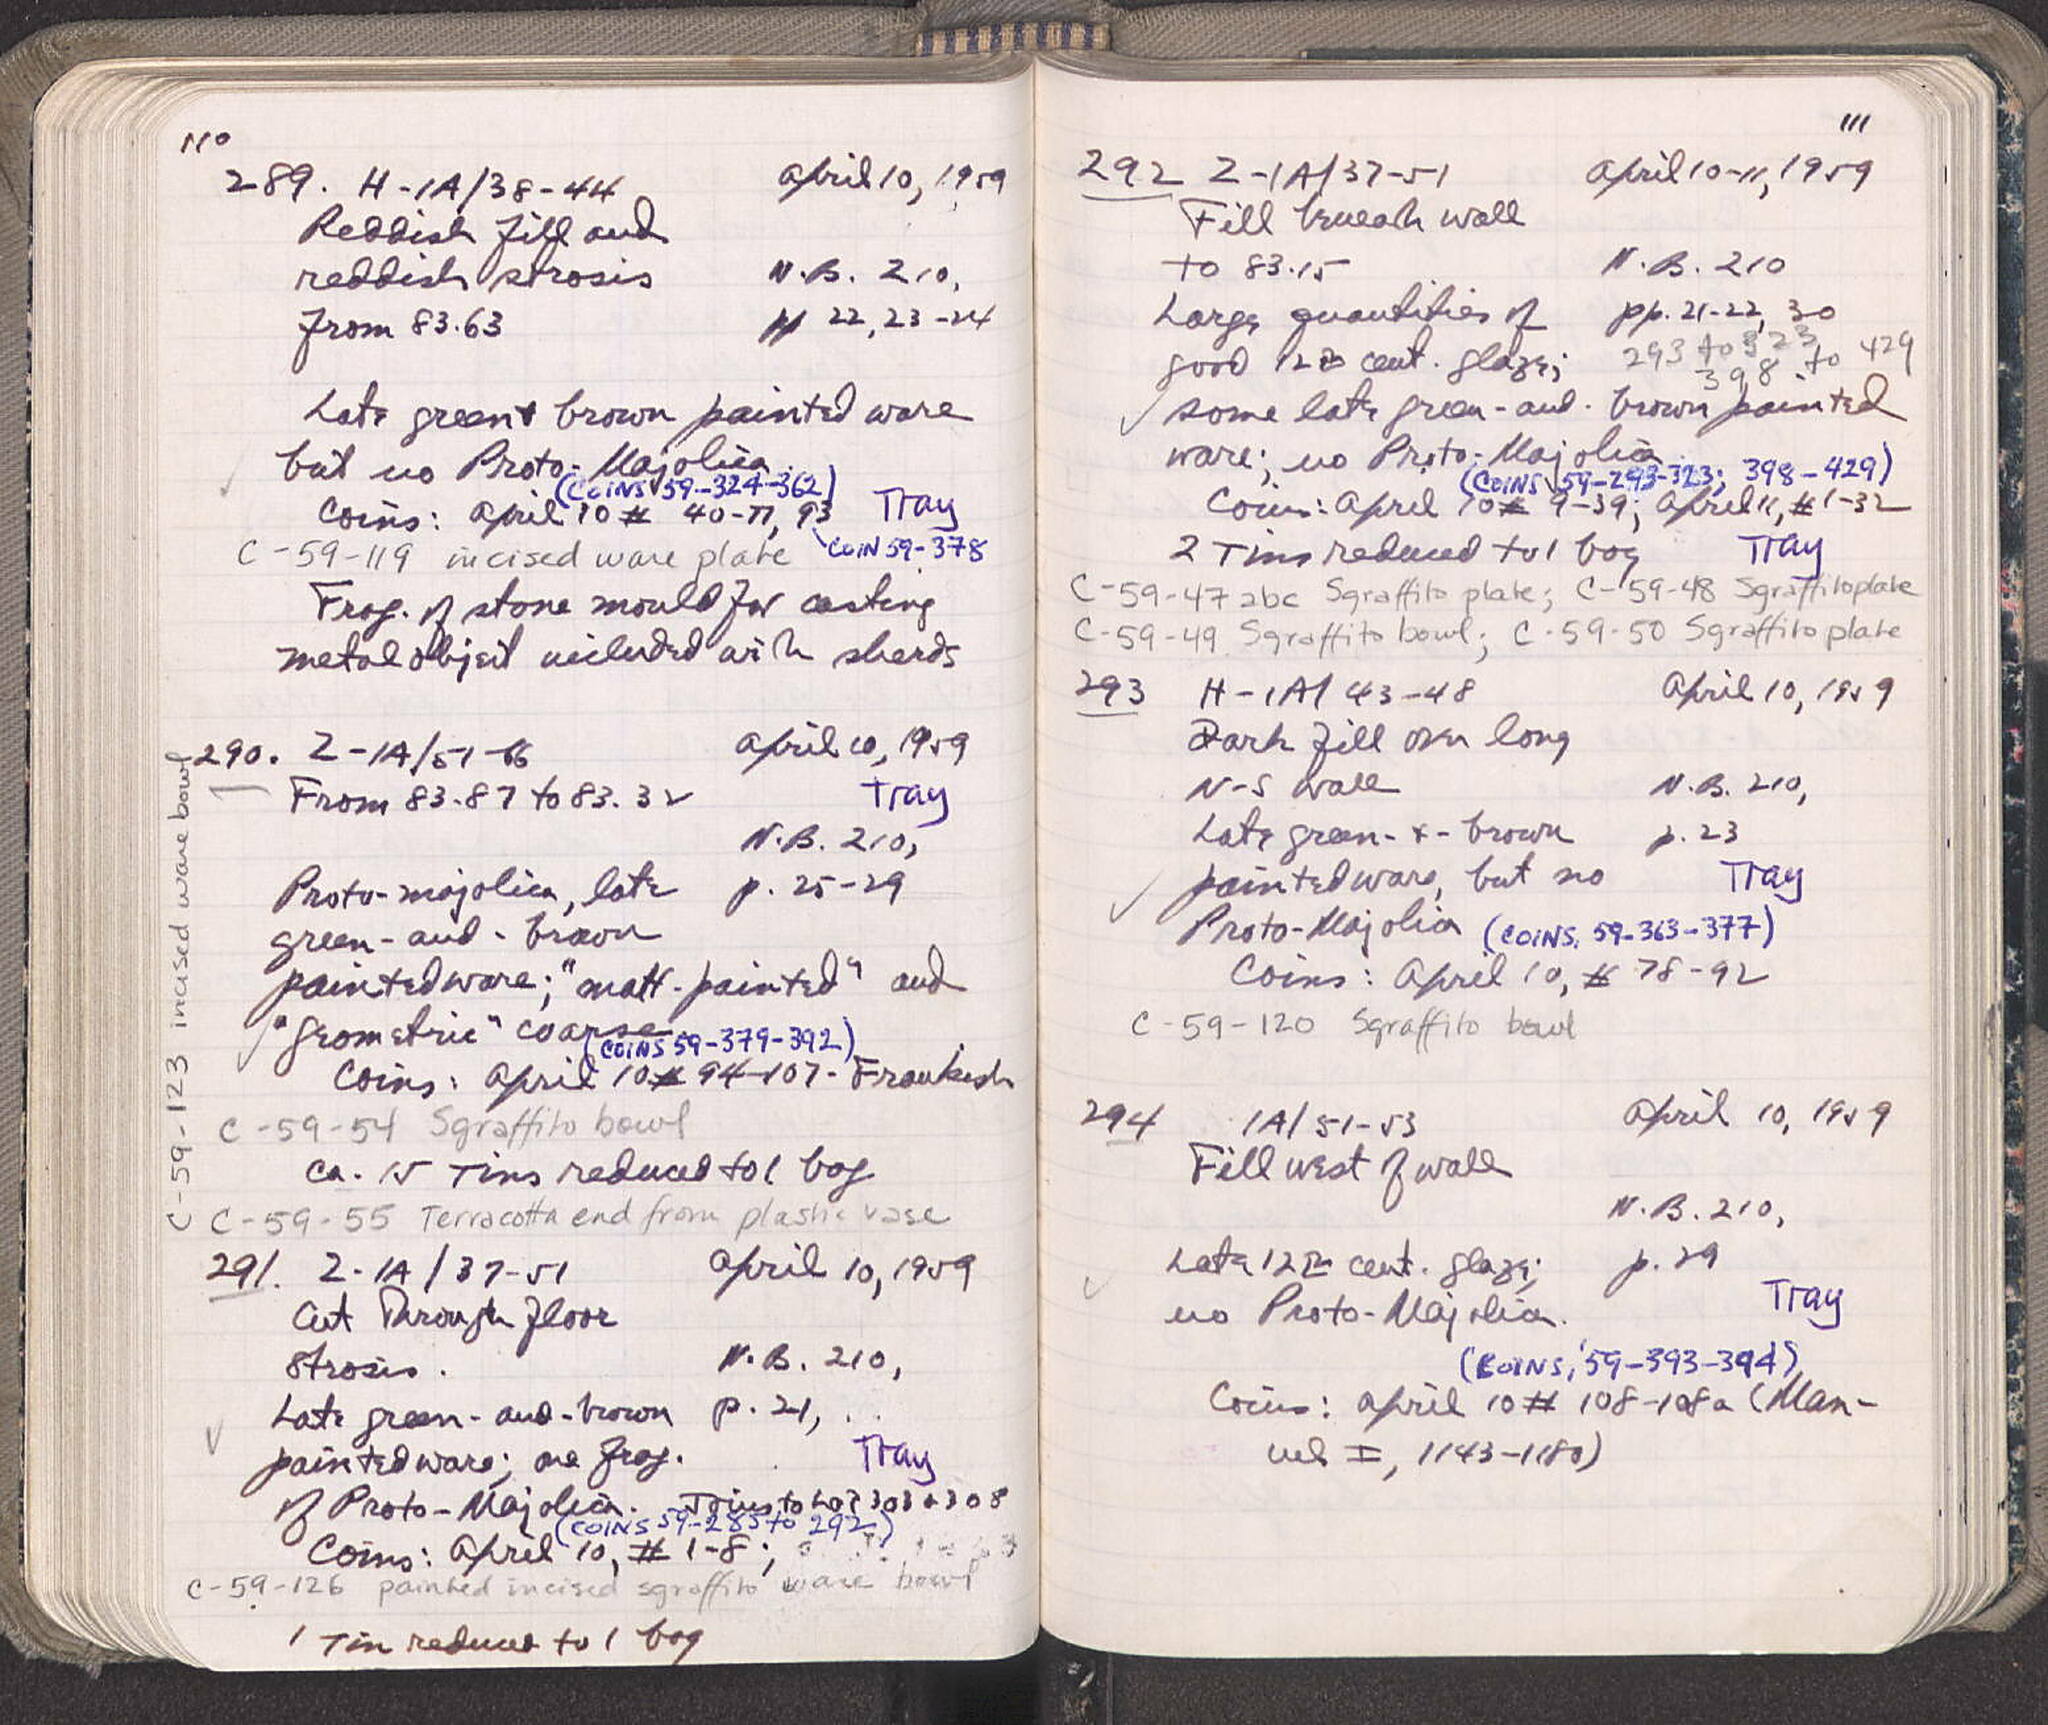 110
289. H-1A/38-44 April 10, 1959
Reddish fill and
reddish strosis N.B. 210,
from 83.63 pp 22, 23-24
Late green + brown painted ware
but no Proto-Majolica
(COINS 59-324-362)
Coins: April 10 # 40-77, 93 Tray
COIN 59-378
C-59-119 incised ware plate
Frag. of stone mould for casting
metal object included with sherds
290. Z-1A/51-66 April 10, 1959
From 83.87 to 83.32 Tray
N.B. 210,
Proto-majolica, late p. 25-29
green-and-brown
painted ware; "matt-painted" and
"geometric" coarse
(COINS 59-379-392)
Coins: April 10 # 94-107- Frankish
C-59-54 Sgraffito bowl
ca. 15 Tins reduced to 1 bag
C-59-55 Terracotta end from plastic vase
C-59-123 incised ware bowl
291. Z-1A/37-51 April 10, 1959
Cut Through floor
strosis. N.B. 210,
Late green-and-brown p. 21,
painted ware; one frag. Tray
of Proto-Majolica. Joins to Lot 303 + 308
(COINS 59-285 to 292)
Coins: April 10, # 1-8;
C-59-126 painted incised sgraffito ware bowl
1 Tin reduced to 1 bag
111
292 Z-1A/37-51 April 10-11, 1959
Fill beneath wall
to 83.15 N.B. 210
Large quantities of pp. 21-22, 30
good 12th cent. glaze; 293 to 323
398 to 429
some late green-and-brown painted
ware; no Proto-Majolica
(COINS 59-293-323; 398-429)
Coins: April 10 # 9-39; April 11, # 1-32
2 Tins reduced to 1 bag Tray
C-59-47 abc Sgraffito plate; C-59-48 Sgraffito plate
C-59-49 Sgraffito bowl; C-59-50 Sgraffito plate
293 H-1A/43-48 April 10, 1959
Dark fill over long
N-S wall N.B. 210,
Late green-+-brown p. 23
painted ware, but no Tray
Proto-Majolica (COINS, 59-363-377)
Coins: April 10, # 78-92
C-59-120 Sgraffito bowl
294 1A/51-53 April 10, 1959
Fill west of wall
N.B. 210,
Late 12th cent. glaze; p. 29
no Proto-Majolica. Tray
(COINS, 59-393-394)
Coins: April 10 # 108-108a (Man-
uel I, 1143-1180)